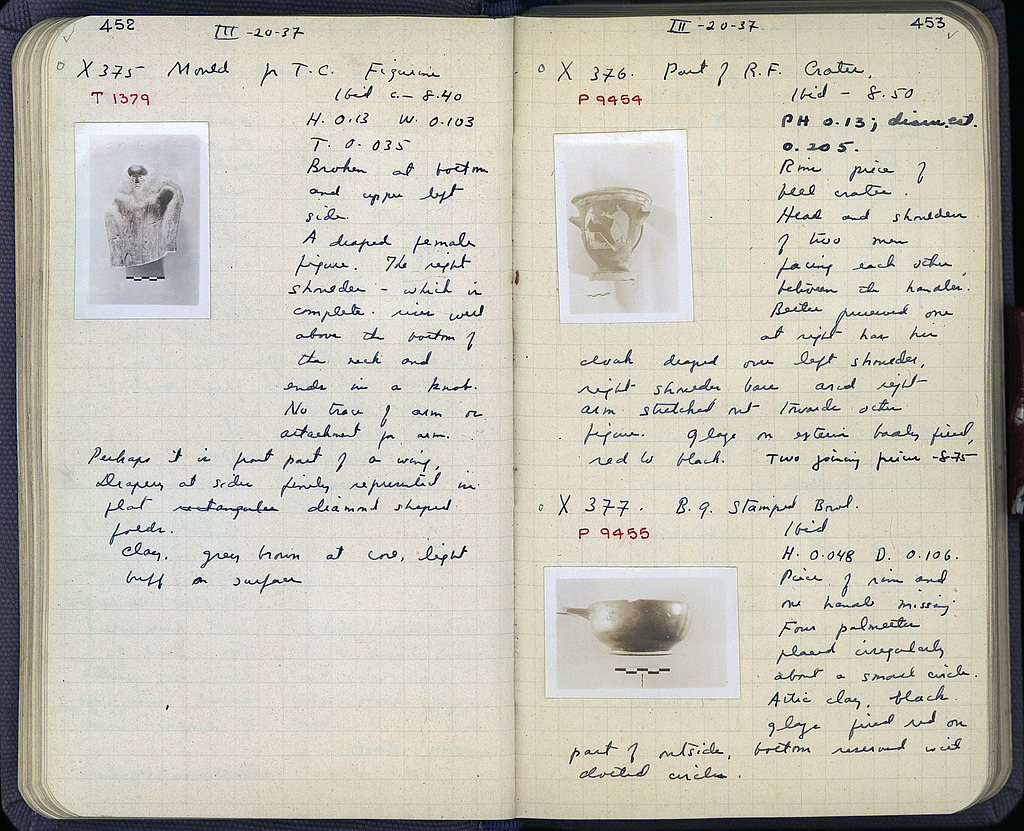 452
III -20-37
X 375 Mould for T.C. Figurine
T 1379
Ibid c. - 8.40
H. 0.13 W. 0.103
T. 0.035
Broken at bottom
and upper left
side.
A draped female
figure. The right
shoulder - which is
complete - rises well
above the bottom of
the neck and
ends in a knob.
No trace of arm or
attachment for arm.
Perhaps it is front part of a wing.
Drapery at sides finely represented in
flat rectangular diamond shaped
folds.
Clay, grey brown at core, light
buff on surface
453
III -20-37
X 376. Part of R.F. Crater.
P 9454
Ibid - 8.50
PH 0.13; diam. est.
0.205.
Rim piece of
bell crater.
Head and shoulders
of two men
facing each other,
between the handles.
Better preserved one
at right has his
cloak draped over left shoulder,
right shoulder bare and right
arm stretched out towards other
figure. Glaze on exterior badly fired,
red to black. Two joining pieces -8.75
X 377. B.g. Stamped Bowl.
P 9455
Ibid
H. 0.048 D. 0.106.
Piece of rim and
one handle missing
Four palmettes
placed irregularly
about a small circle.
Attic clay, black
glaze fired red on
part of outside, bottom reserved with
dotted circles.